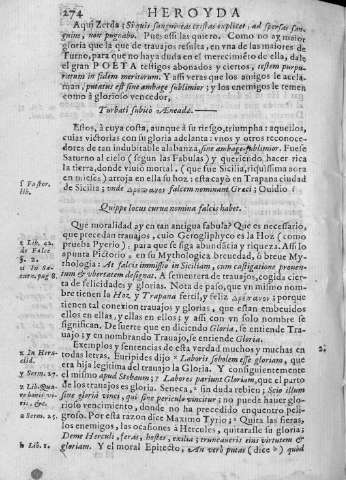 274 HEROYDA
Aqui Zerda: Si quis sanguineas cristas explicet, ad spersas san-
guine, non pugnabo. Pues assi las quiero. Como no ay maior
gloria que la que de trauajos resulta, en vna de las maiores de
Turno, para que no haya duda en el merecimiẽto de ella, dale
el gran POETA testigos abonados y ciertos, ostem purpu-
ratum in fidem meritorum. Y assi veras que los amigos le acla-
man, putatus est sine ambage sublimior; y los enemigos le temen
como à glorioso vencedor,
Turbati subitò Æneadæ.
Estos, à cuya costa, aunque à su riesgo, triumpha: aquellos,
cuias victorias con su gloria adelanta: vnos y otros reconoce-
dores de tan indubitable alabanza, sine ambage sublimior. Fuese
Saturno al cielo (segun las Fabulas) y queriendo, hacer rica
la tierra, donde viuió mortal, (que fue Sicilia, riquissima aora
en mieses) arrojó en ella su hoz: esta cayó en Trapana ciudad
de Sicilia; unde falcem nominant Greci; Ouidio
Quippe locus curuæ nomina falcis habet.
Que moralidad ay en tan antigua fabula? Que es necesario,
que precedan trauajos, cuio Geroglyphico es la Hoz (como
prueba Pyerio); para que se siga abundancia y riqueza. Assi lo
apunta Pictorio, en su Mythologica breuedad, ò breue My-
thologia: At falcis immissio in Siciliam, cum castigatione prouen-
tum & vbertatem designat. A sementera de trauajos, cogida cier-
ta de felicidades y glorias. Nota de paso, que vn mismo nom-
bre tienen la Hoz, y Trapana fertil, y feliz; porque
tienen tal conexion trauajos y glorias, que estan embeuidos
ellos en ellas, y ellas en ellos; y assi con vn solo nombre se
significan. De suerte que en diciendo Gloria, se entiende Traua-
jo; y en nombrando Trauajo, se entiende Gloria.
Exemplos y sentencias de esta verdad muchos y muchas en
todas letras. Euripides dijo Laboris sobolem esse gloriam, que
era hija legitima del trauajo la Gloria. Y consiguientemente
el mismo apud Stobæum; Labores pariunt Gloriam, que el parto
de los trauajos es gloria. Seneca, sin duda rebien; Scio illum
sine gloria vinci, qui sine periculo vincitur; no puede hauer glo-
rioso vencimiento, donde no ha precedido enquentro peli-
groso. Por esta razon dice Maximo Tyrio; Quita las fieras,
los enemigos, las ocasiones à Hercules, quitarasle su gloria;
Deme Herculi, feras, hostes, exilia; truncaueris eius virtutem &
gloriam. Y el moral Epitecto, An verò putas (dice) quod